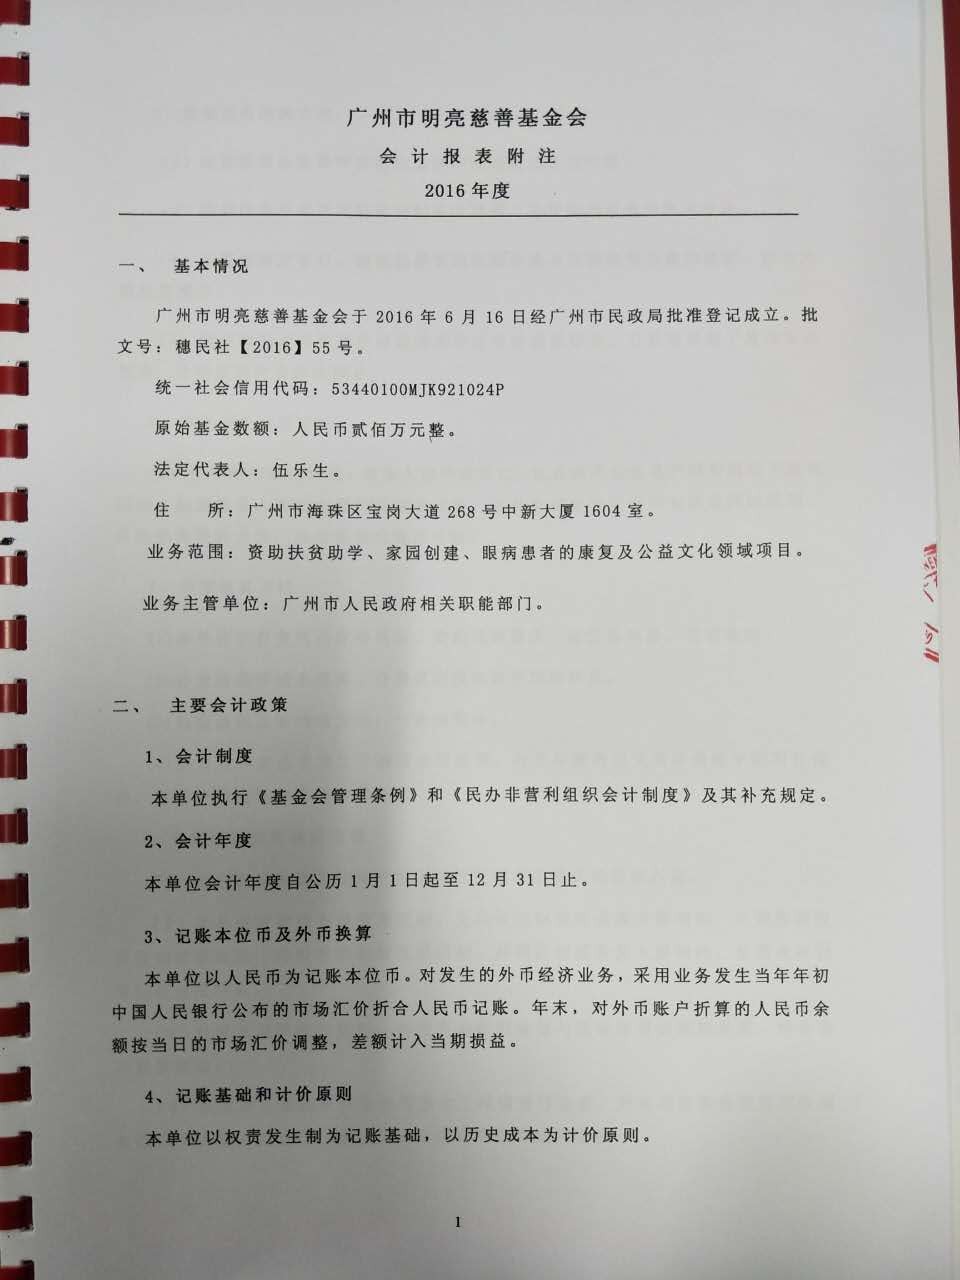 广州市明亮慈善基金会
会计报表附注
2016年度
一、 基本情况
广州市明亮慈善基金会于 2016 年 6 月 16 日经广州市民政局批准登记成立。批
文号：穗民社【2016】55 号。
统一社会信用代码：53440100MJK921024P
原始基金数额：人民币贰佰万元整。
法定代表人：伍乐生。
住 所：广州市海珠区宝岗大道 268 号中新大厦 1604 室。
业务范围：资助扶贫助学、家园创建、眼病患者的康复及公益文化领域项目。
业务主管单位：广州市人民政府相关职能部门。
二、 主要会计政策
1、会计制度
本单位执行《基金会管理条例》和《民办非营利组织会计制度》及其补充规定。
2、会计年度
本单位会计年度自公历 1 月 1 日起至 12 月 31 日止。
3、记账本位币及外币换算
本单位以人民币为记账本位币。对发生的外币经济业务，采用业务发生当年年初
中国人民银行公布的市场汇价折合人民币记账。年末，对外币账户折算的人民币余
额按当日的市场汇价调整，差额计入当期损益。
4、记账基础和计价原则
本单位以权责发生制为记账基础，以历史成本为计价原则。
1